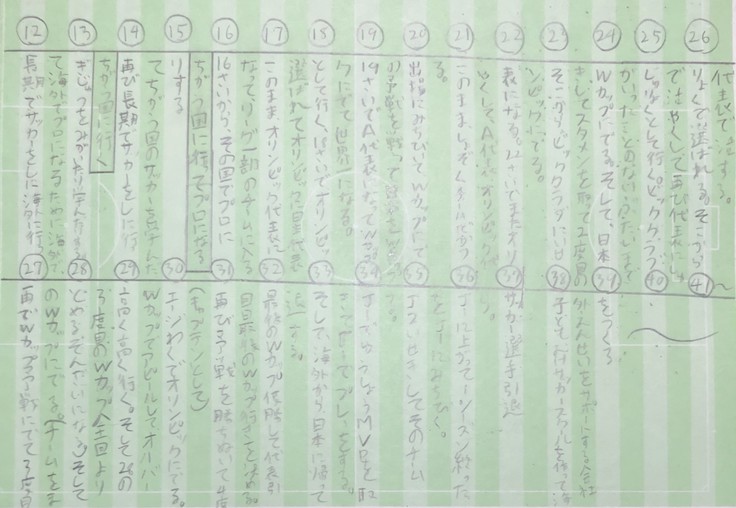 ⑫ ⑬ ⑭ ⑮ ⑯ ⑰ ⑱ ⑲ ⑳ ㉑ ㉒ ㉓ ㉔ ㉕ ㉖
長期でサッカーをしに海外に行
て海外でプロになるために海外で
ぎじゅつをみがいたり学んだりする
ちがう国に行く
再び長期でサッカーをしに行
てちがう国のサッカーを学んだ
りする
ちがう国に行ってプロになる
16さいから、その国でプロに
なって、リーグ一部のチームに入る
このままオリンピック代表に
選ばれてオリンピックに日本代表
として行く。18さいでオリンピッ
クにでて世界一になる。
19さいでA代表になってW
の予戦を戦って
出場にみちびいてWカップにで
る。
このまましょぞくチームでかつ
やくして、A代表、オリンピック代
表になる。22さいでまたオリ
ンピックにでる。
そこからビッグクラブに
きしてスタメンを取って2度目の
Wカップにでる。そして、日本
がいったことのない
として行く。ビッグクラブ
でかつやくして再び代表にし
りょくで選ばれる。そこから
代表で活する。
㉗ ㉘ ㉙ ㉚ ㉛ ㉜ ㉝ ㉞ ㉟ ㊱ ㊲ ㊳ ㊴ ㊵ ㊶〜
再びWカップ予戦にでて3度目
のWカップにでる。(チームをま
じめるそんざいになる)そして
3度目のWカップ全回より
高く高く行く。そして28の
Wカップでアピールしてオーバー
エイジわくでオリンピックにでる。
(キャプテンとして)
再び予戦を勝ちぬいて4度
目最後のWカップ行きを決める。
最後のWカップ優勝して代表引
退する。
そして、海外から、日本に帰って
プレーをする。
ゆうしょうMVPを取
る。
せきしてそのチーム
をJ1にみちびく。
J1に上がって1シーズン終った
ら。
サッカー選手引退
子ども行サッカースクールを作って
をサポートする会社
をつくる